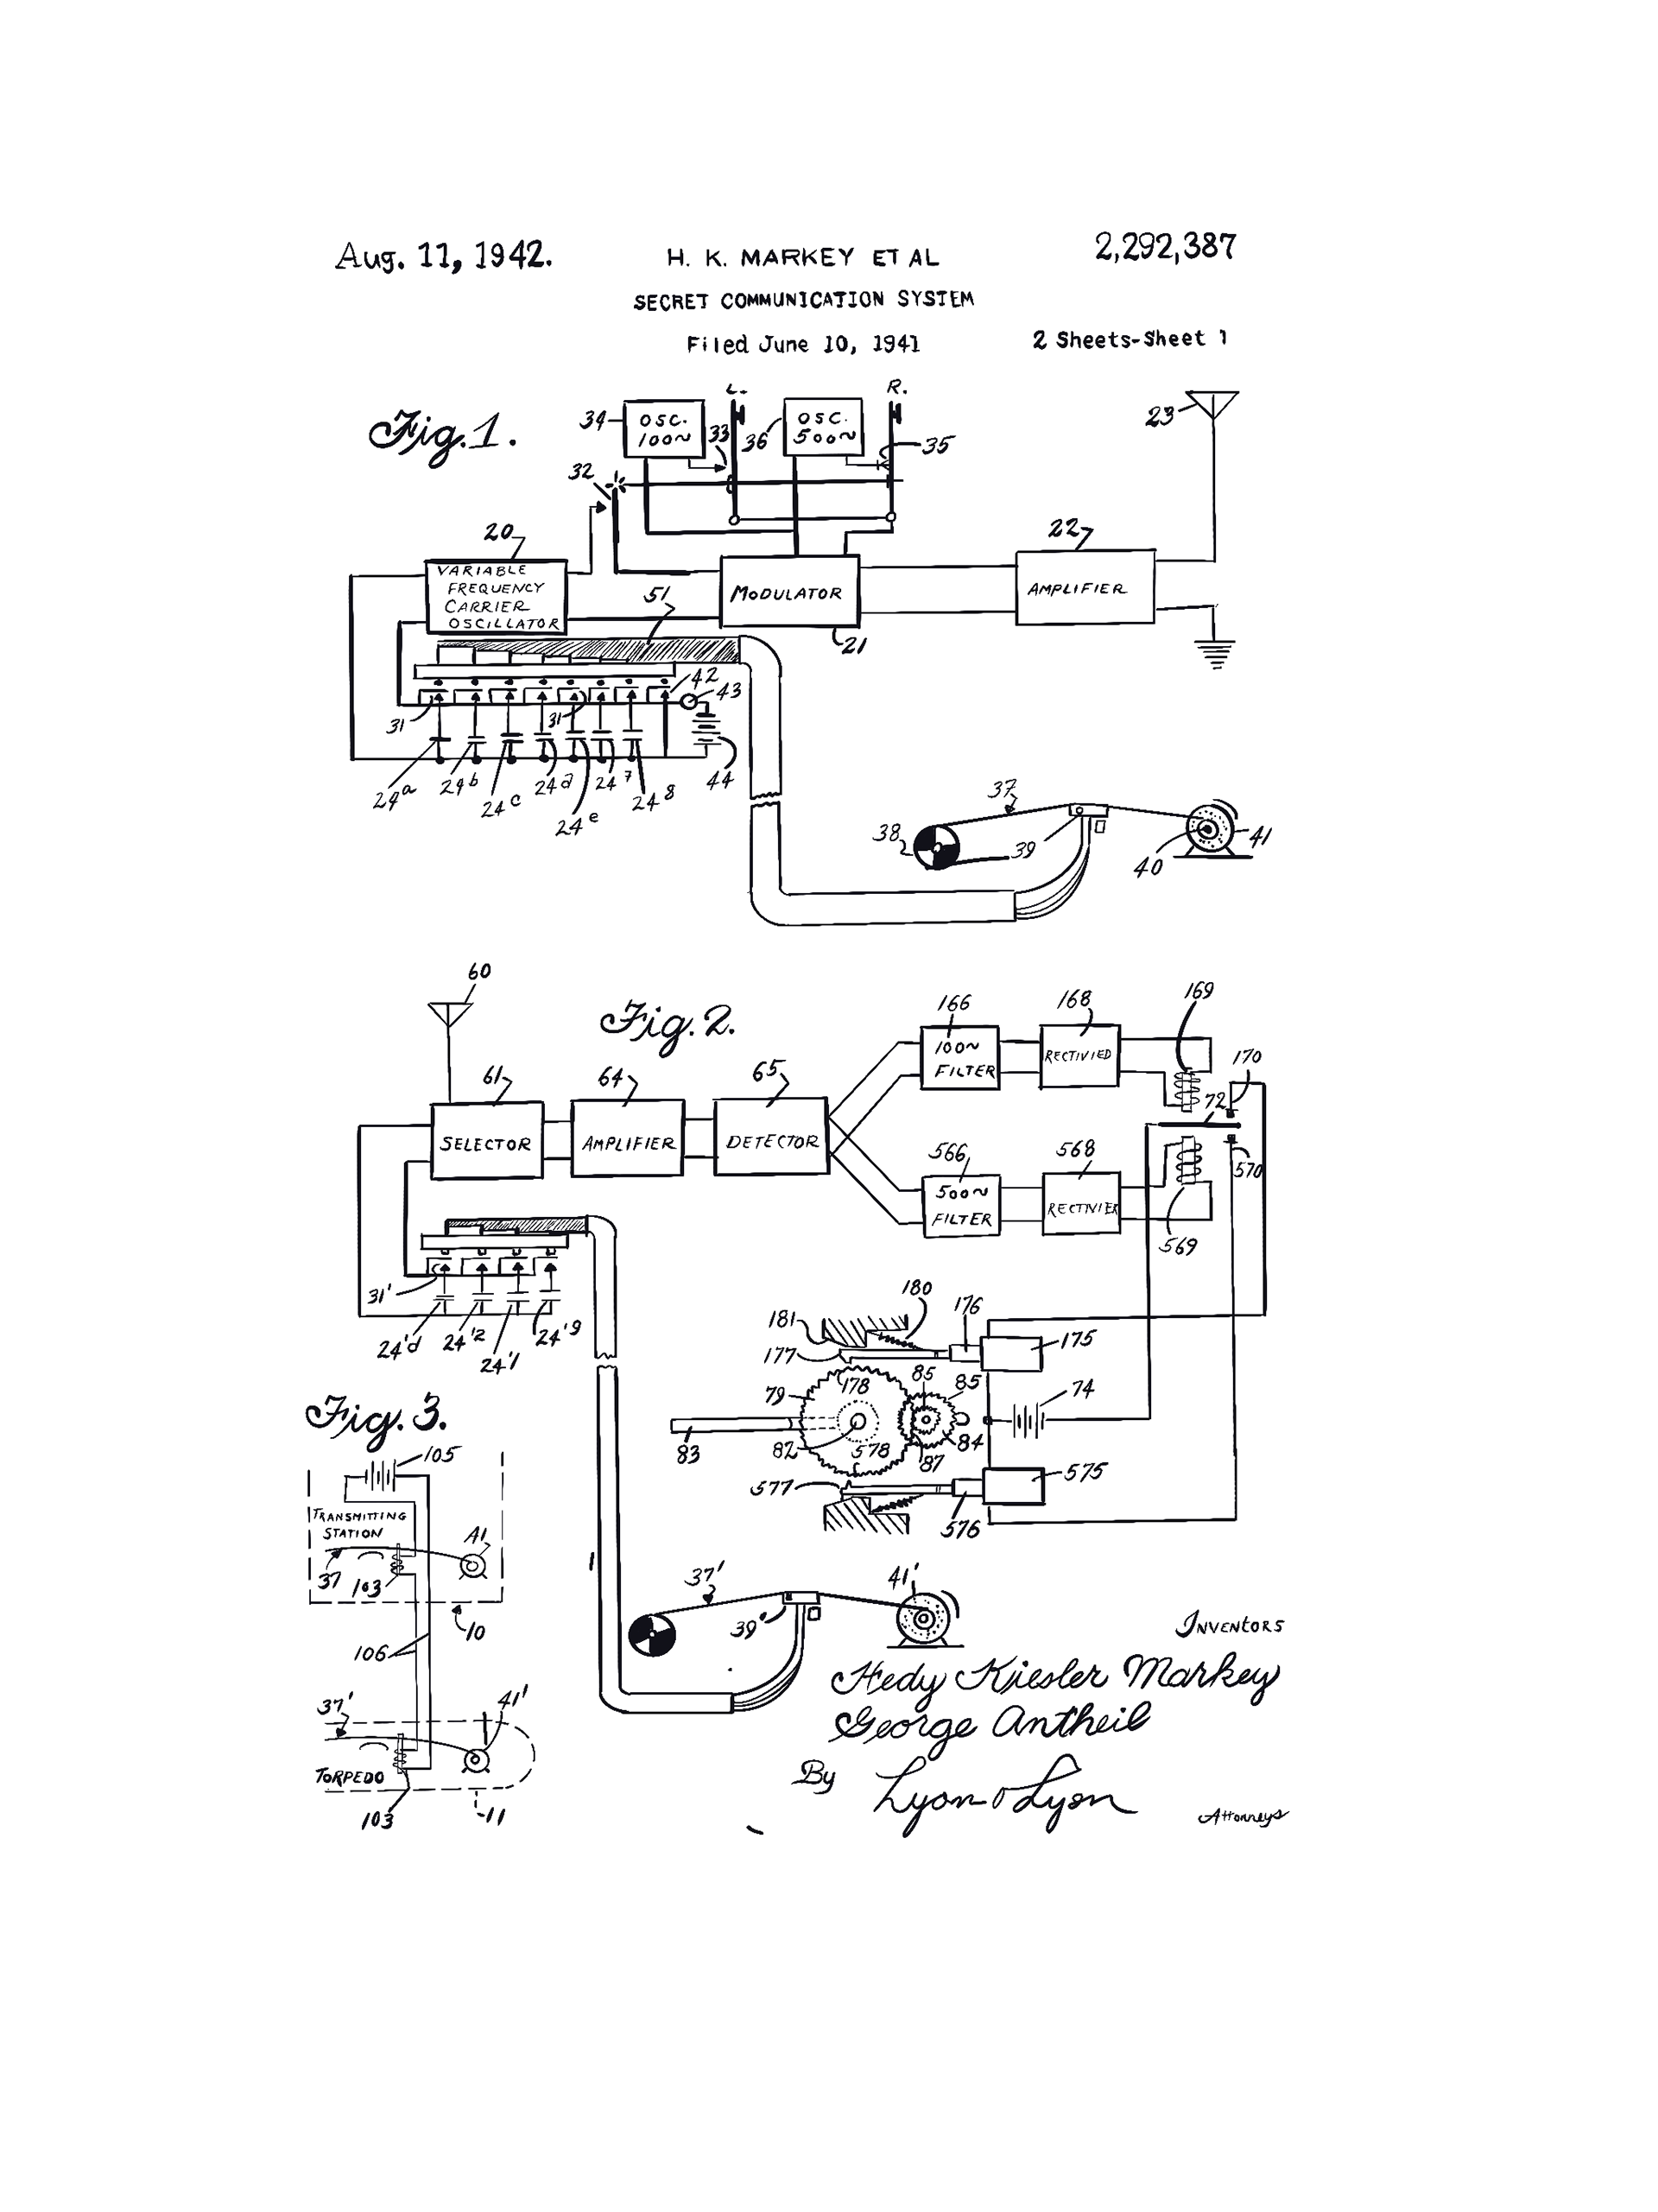 Aug. 11, 1942.
H. K. MARKEY ET AL
2,292,387
SECRET COMMUNICATION SYSTEM
Filed June 10, 1941
2 Sheets-Sheet 1
Fig. 1.
34
OSC.
100~
33
L.
36
OSC.
500~
R.
35
23
32
20
VARIABLE
FREQUENCY
CARRIER
OSCILLATOR
51
MODULATOR
21
22
AMPLIFIER
42
43
31
31
44
24a
24b
24c
24d
24e
24 7
24 8
37
38
39
40
41
60
Fig. 2.
61
SELECTOR
64
AMPLIFIER
65
DETECTOR
166
100~
FILTER
168
RECTIVIED
169
170
72
566
500~
FILTER
568
RECTIVIER
569
570
31'
24'd
24'2
24'1
24'9
180
181
176
177
175
178
79
85
85
74
83
82
578
87
84
577
575
576
Fig. 3.
105
TRANSMITTING
STATION
A1
37
103
10
106
37'
41'
TORPEDO
103
11
37'
39'
41'
INVENTORS
Hedy Kiesler Markey
George Antheil
By
Lyon & Lyon
Attorneys